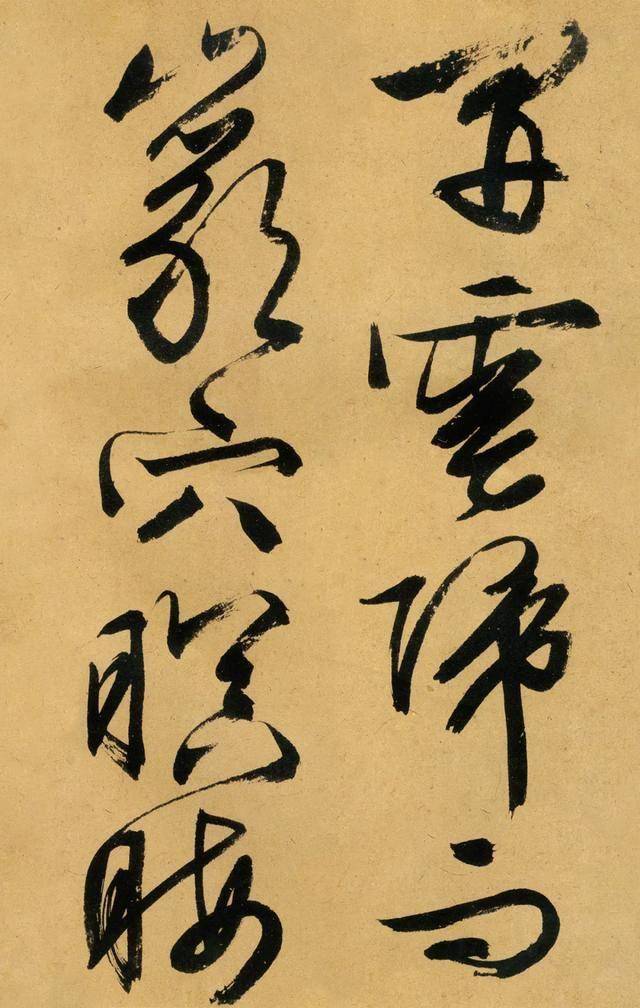 開雲歸而
巖穴暝晦